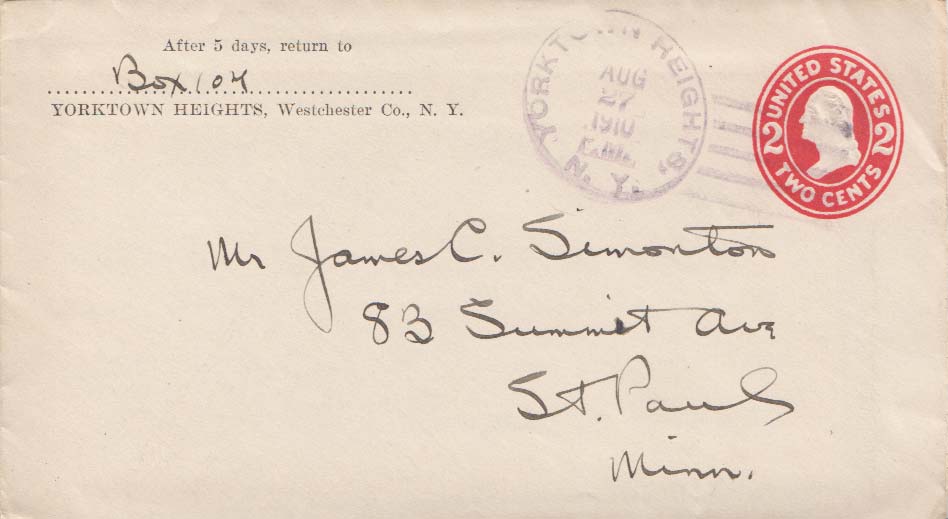 After 5 days, return to
Box 104
YORKTOWN HEIGHTS, Westchester Co., N. Y.
YORKTOWN HEIGHTS, N. Y.
AUG
27
1910
UNITED STATES
2 2
TWO CENTS
Mr James C. Simonton
83 Summit Ave
St. Paul
Minn.